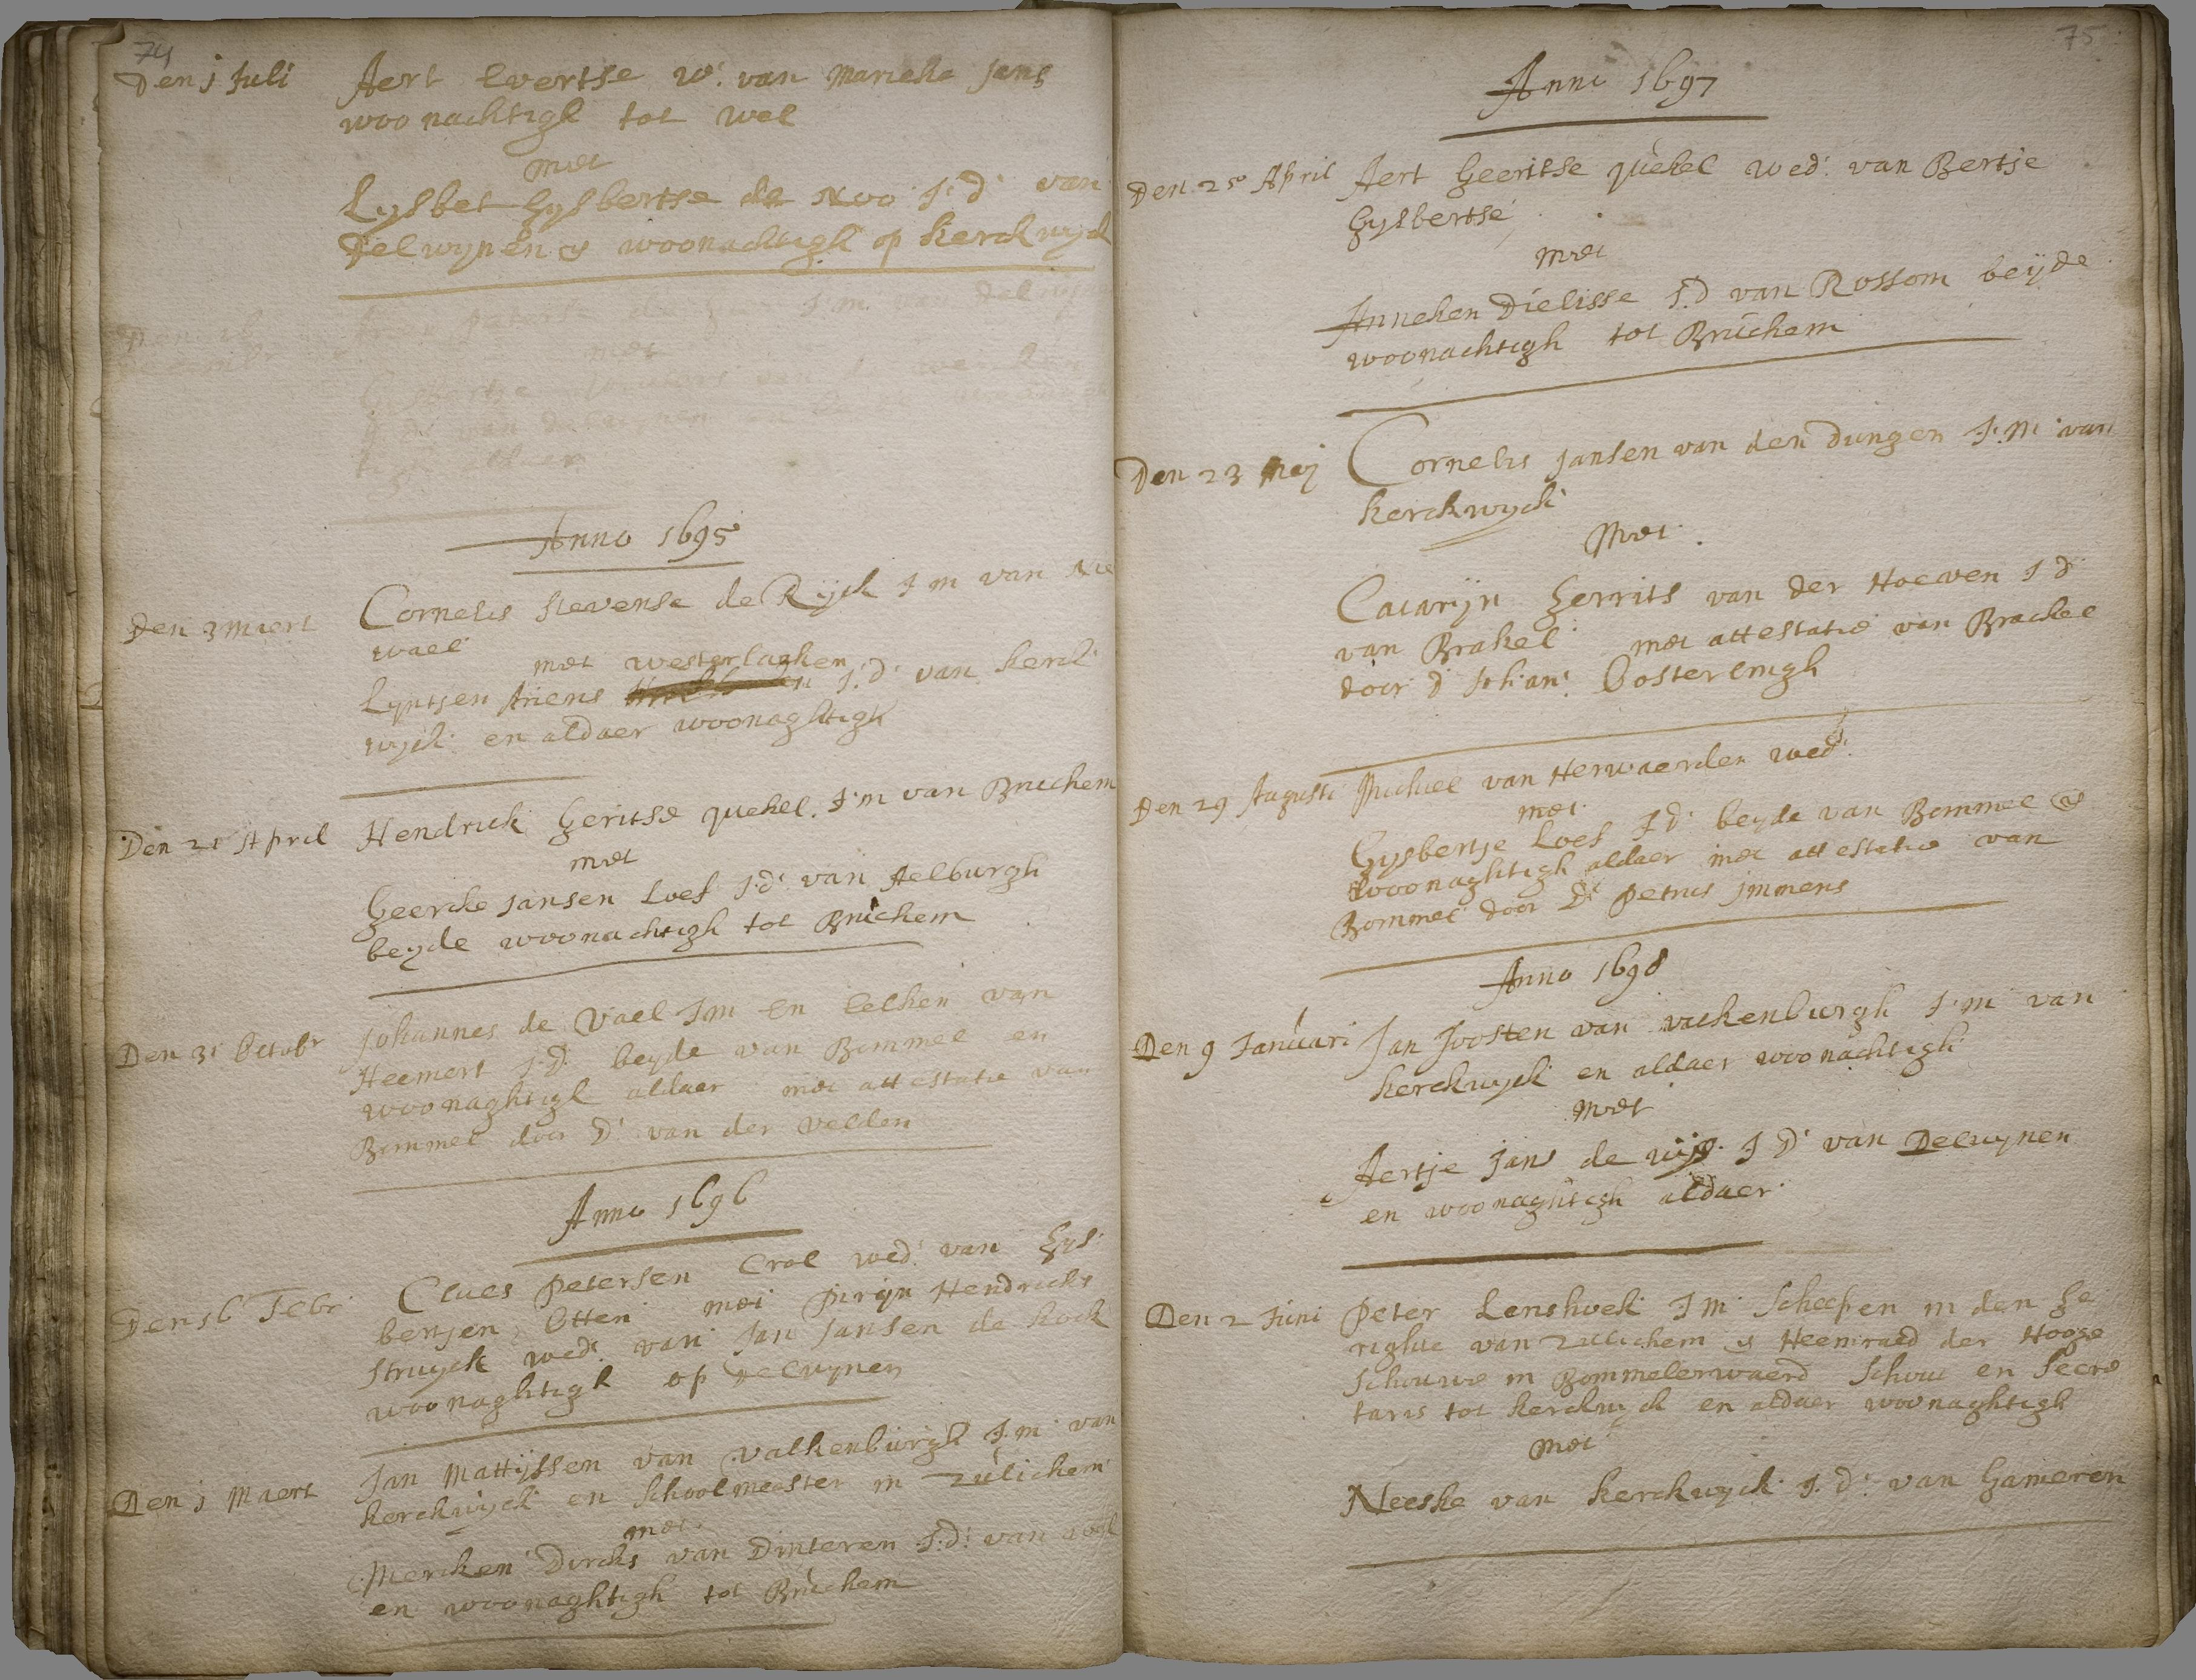 74
Den 1 Juli Aert Evertse w: van Marieke Jans
woonachtigh tot wel
met
Lysbet Gysbertse de Roo J:D: van
Delwynen & woonachtigh op kerckwyck
J.m. Delwyn
met
Gysbertje
J d: van delwynen
Anno 1695
Den 3 Maert Cornelis Stevense de Ryck J m van Nie
wael
met westerlaken
Lyntjen Ariens J:d: van kerck
wyck en aldaer woonaghtigh
Den 21 April Hendrick Geritse Quekel J:m van Bruchem
met
Geercke Jansen Loef J:d: van Aelburgh
beyde woonachtigh tot Bruchem
Den 31 Octobr Johannes de Vael Jm En Eelken van
Heemert J:D: beyde van Bommel en
woonaghtigh aldaer met attestatie van
Bommel door D: van der Velden
Anno 1696
Den 16 Febr: Claes Petersen Crol wed: van Gys-
bertjen Otten met Piryn Hendricks
Struyck wed: van Jan Jansen de kock
woonaghtigh op Delwynen
Den 1 Maert Jan Mattyssen van Valkenburgh J:m: van
kerckwyck en Schoolmeester in Zulichem
met
Mercken Dircks van Dinteren J:d: van
en woonaghtigh tot Bruchem
75
Anno 1697
Den 25 April Aert Geeritse Quekel wed: van Bertje
Gysbertse
met
Anneken Dielisse J:D van Rossom beyde
woonachtigh tot Bruchem
Den 23 Mey Cornelis Jansen van den Dungen J:m: van
kerckwyck
Met
Cataryn Gerrits van der Hoeven J d:
van Brakel met attestatie van Brackel
door d Johan: Oosterlingh
Den 29 Augusti Michiel van Herwaerden wed:
met
Gysbertje Loef J d: beyde van Bommel &
woonaghtigh aldaer met attestatie van
Bommel door D: Petrus Immens
Anno 1698
Den 9 Januari Jan Joosten van valkenburgh J:m: van
kerckwyck en aldaer woonachtigh
met
Aertje Jans de J D: van Delwynen
en woonaghtigh aldaer
Den 2 Juni Peter Lenshoek J m: Scheepen in den Ge
righte van Zulichem & Heemraed der Hooge
Schouwe in Bommelerwaerd Schout en Secre
taris tot kerckwyck en aldaer woonaghtigh
met
Neeske van kerckwyck J: D: van Gameren